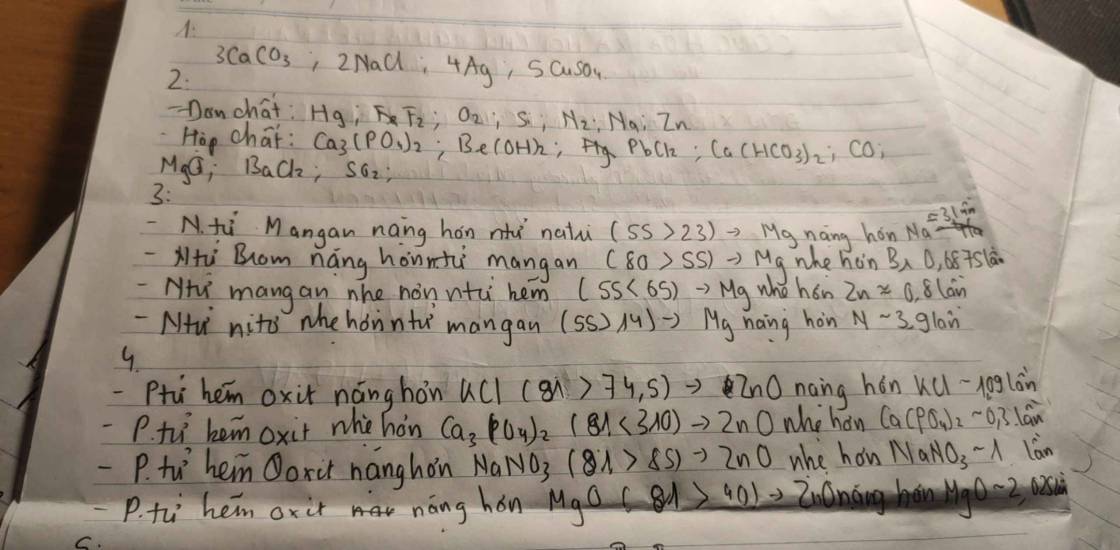 1:
3CaCO3 ; 2NaCl ; 4Ag ; 5CuSO4
2:
- Đơn chất : Hg ; F2 ; O2 ; Si ; N2 ; Na ; Zn
- Hợp chất : Ca3(PO4)2 ; Be(OH)2 ; PbCl2 ; Ca(HCO3)2 ; CO ;
MgO ; BaCl2 ; SO2 ;
3:
- N.tử Mangan nặng hơn ntử natri (55 > 23) → Mg nặng hơn Na ≈ 3 lần
- Ntử Brom nặng hơn ntử mangan (80 > 55) → Mg nhẹ hơn Br 0,6875 lần
- Ntử mangan nhẹ hơn ntử kẽm (55 < 65) → Mg nhẹ hơn Zn ≈ 0,8 lần
- Ntử nitơ nhẹ hơn ntử mangan (55 > 14) → Mg nặng hơn N ~ 3,9 lần
4.
- Ptử kẽm oxit nặng hơn KCl (81 > 74,5) → ZnO nặng hơn KCl ~ 1,09 lần
- P.tử kẽm oxit nhẹ hơn Ca3(PO4)2 (81 < 310) → ZnO nhẹ hơn Ca(PO4)2 ~ 0,3 lần
- P.tử kẽm Ooxit nặng hơn NaNO3 (81 > 85) → ZnO nhẹ hơn NaNO3 ~ 1 lần
- P.tử kẽm oxit nặng hơn MgO (81 > 40) → ZnO nặng hơn MgO ~ 2,025 lần